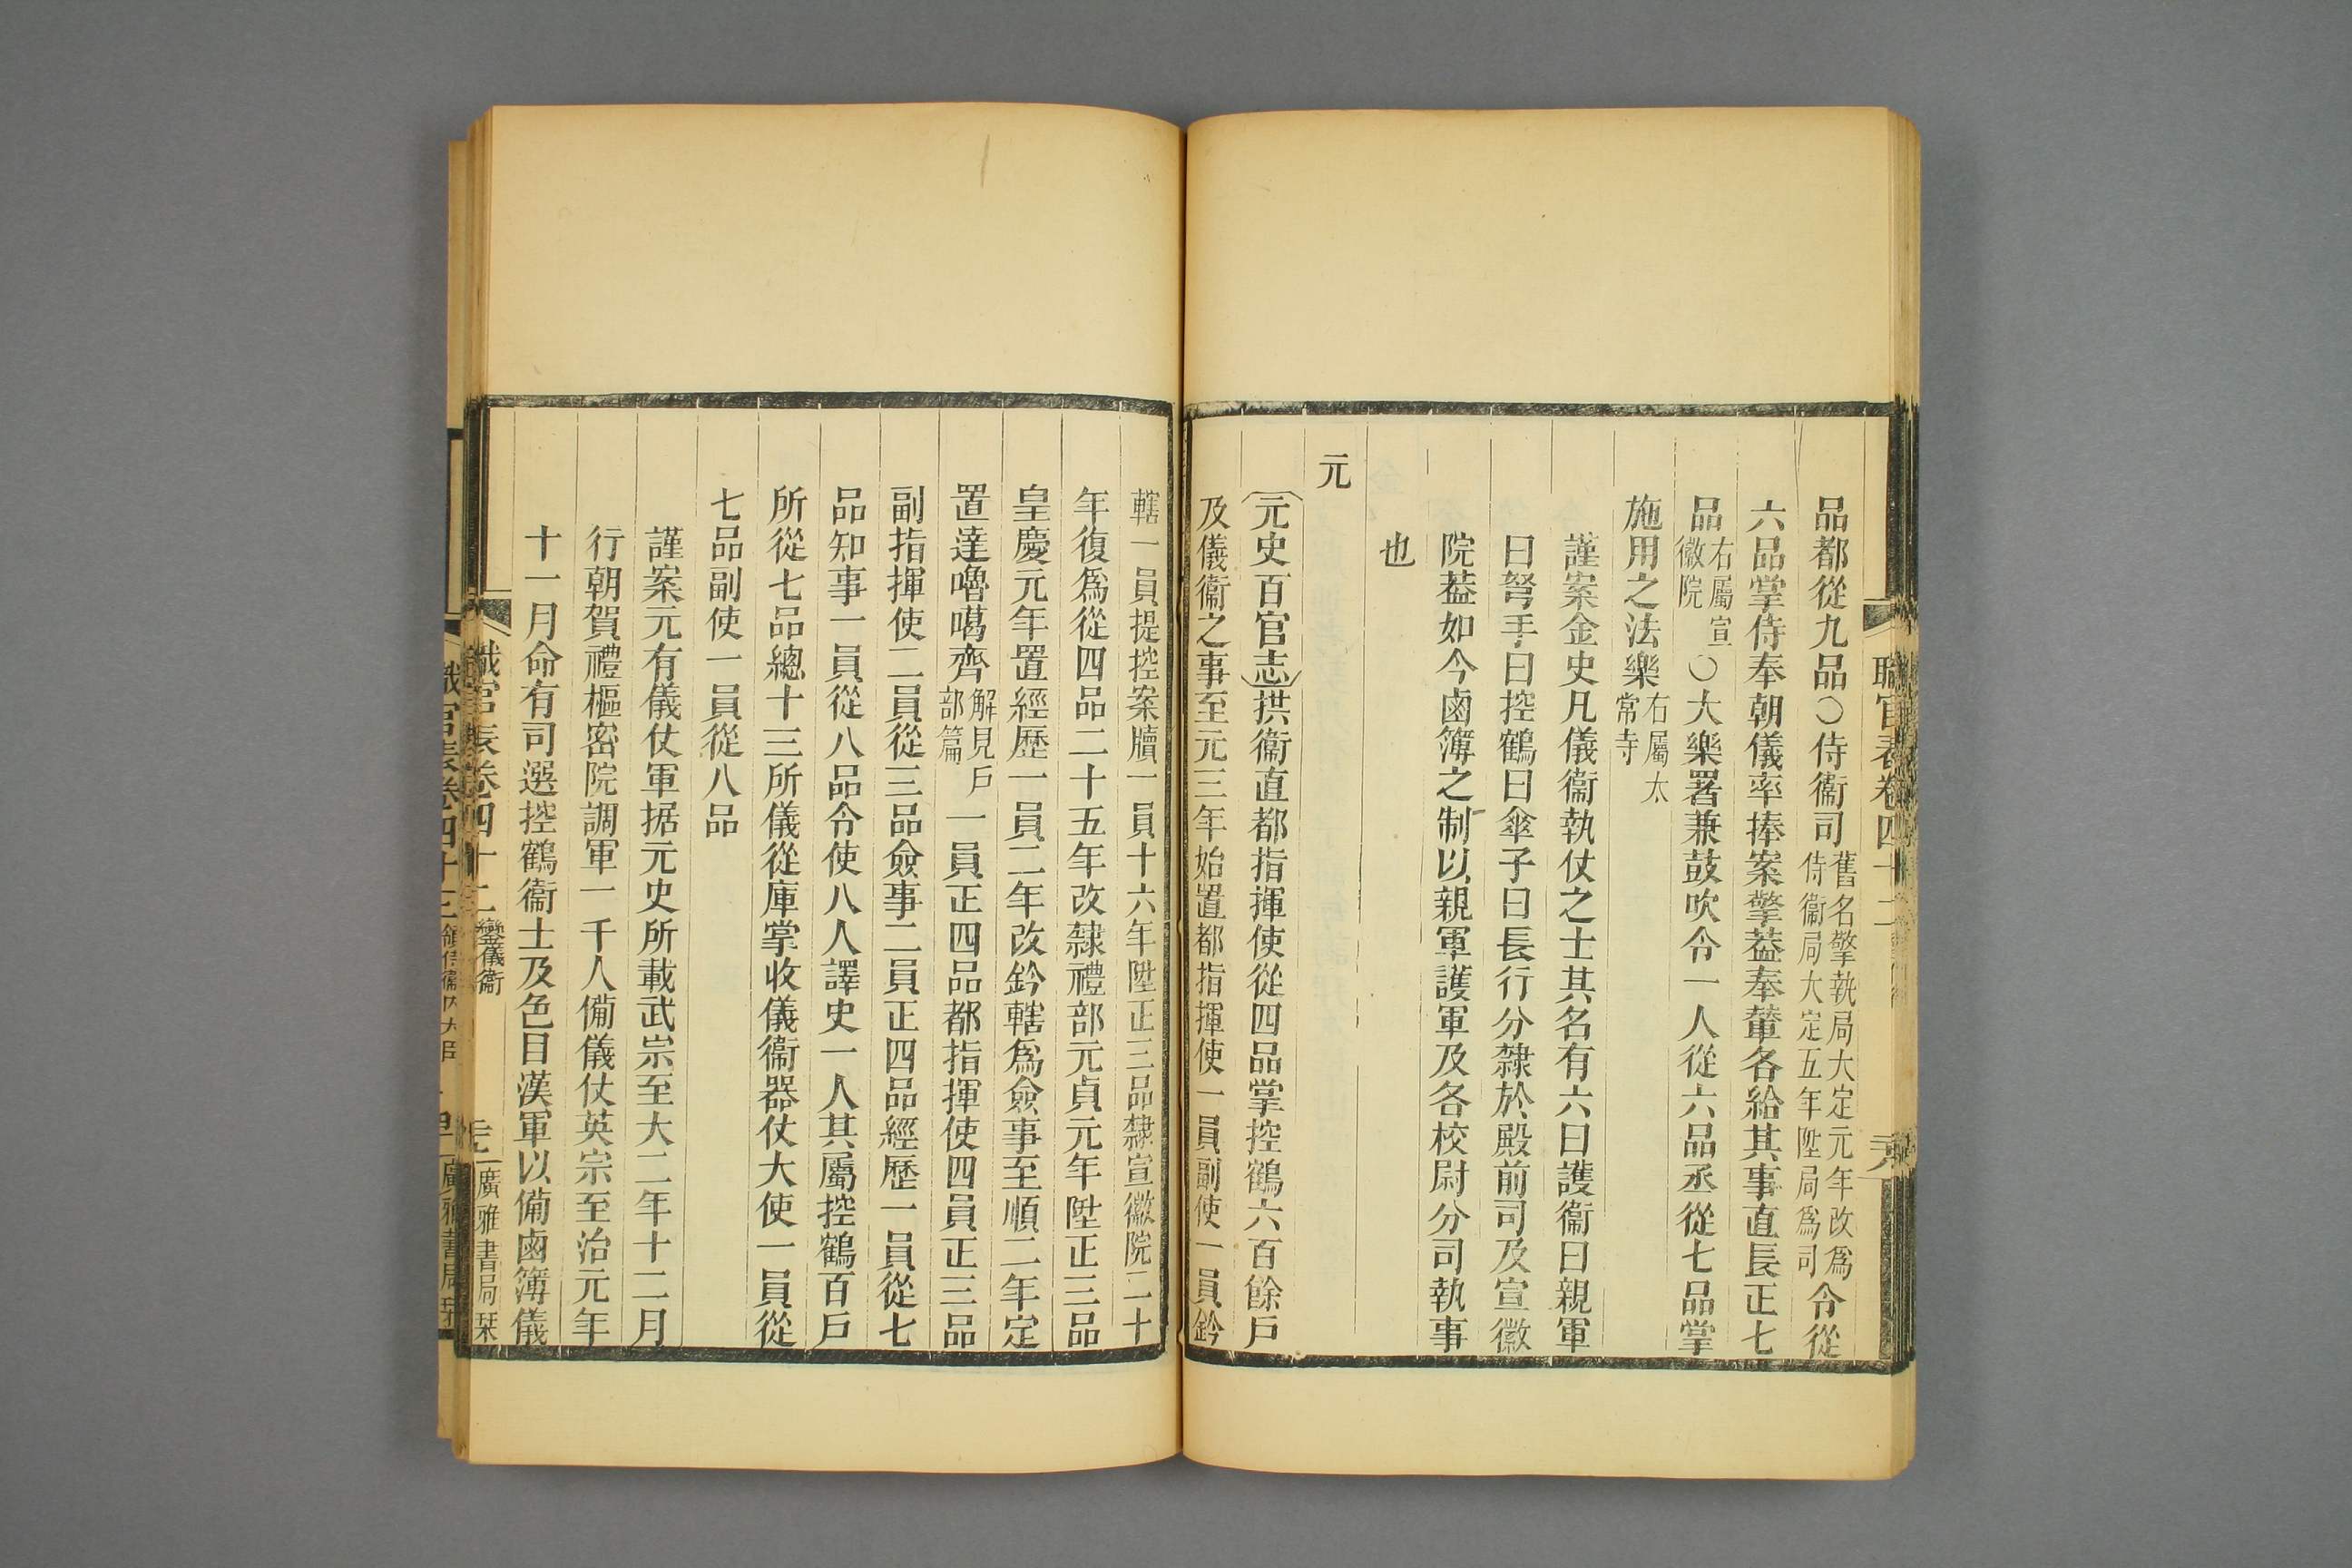 職官表卷四十二
品都從九品○侍衞司舊名擎執局大定元年改爲侍衞局大定五年陞局爲司令從
六品掌侍奉朝儀率捧案擎葢奉輦各給其事直長正七
品右屬宣徽院○大樂署兼鼓吹令一人從六品丞從七品掌
施用之法樂右屬太常寺
謹案金史凡儀衞執仗之士其名有六曰護衞曰親軍
曰弩手曰控鶴曰傘子曰長行分隸於殿前司及宣徽
院葢如今鹵簿之制以親軍護軍及各校尉分司執事
也
元
元史百官志拱衞直都指揮使從四品掌控鶴六百餘戶
及儀衞之事至元三年始置都指揮使一員副使一員鈐
轄一員提控案牘一員十六年陞正三品隸宣徽院二十
年復爲從四品二十五年改隸禮部元貞元年陞正三品
皇慶元年置經歷一員二年改鈐轄爲僉事至順二年定
置達嚕噶齊解見戶部篇一員正四品都指揮使四員正三品
副指揮使二員從三品僉事二員正四品經歷一員從七
品知事一員從八品令使八人譯史一人其屬控鶴百戶
所從七品總十三所儀從庫掌收儀衞器仗大使一員從
七品副使一員從八品
謹案元有儀仗軍据元史所載武宗至大二年十二月
行朝賀禮樞密院調軍一千人備儀仗英宗至治元年
十一月命有司選控鶴衞士及色目漢軍以備鹵簿儀
職官表卷四十二 鑾儀衞
廣雅書局栞